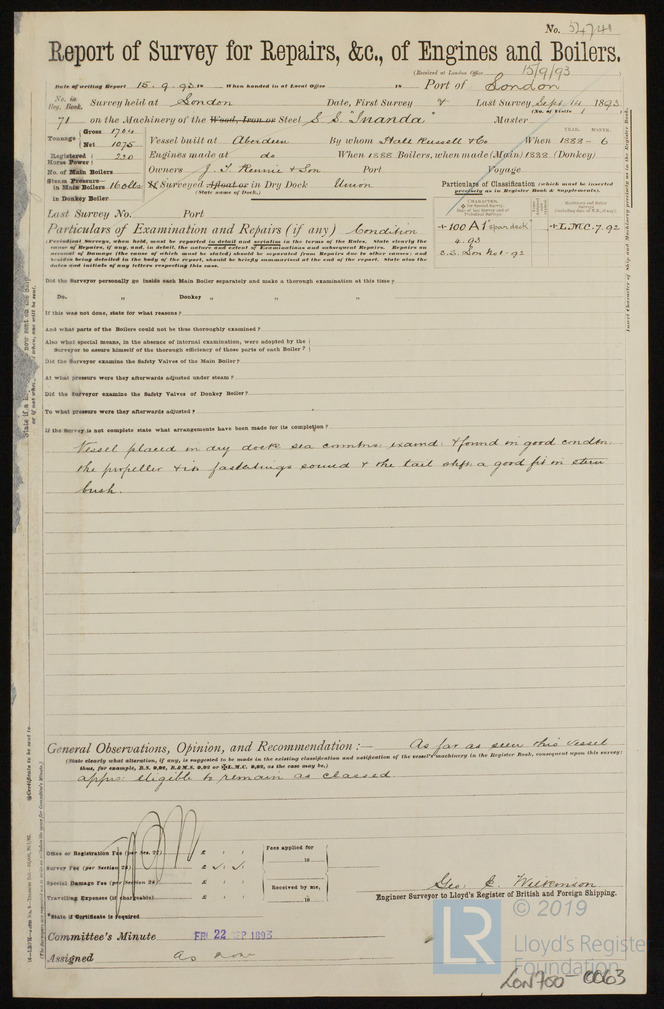 No. 54741
Report of Survey for Repairs, &c., of Engines and Boilers.
(Received at London Office 15/9/93)
Date of writing Report 15. 9. 93. 18 When handed in at Local Office 18 Port of London
No. in Reg. Book. Survey held at London Date, First Survey & Last Survey Sept. 14 1893
(No. of Visits )
71 on the Machinery of the Wood, Iron or Steel S. S. "Inanda" Master
Tonnage Gross 1704 Net 1075 Vessel built at Aberdeen By whom Hall Russell & Co When 1888 - 6
YEAR. MONTH.
Registered Horse Power 220 Engines made at do When 1888 Boilers, when made (Main) 1888 (Donkey)
No. of Main Boilers Owners J. T. Rennie & Son Port Voyage
Steam Pressure in Main Boilers 160 lbs If Surveyed Afloat or in Dry Dock Union
(State name of Dock.)
in Donkey Boiler
Particulars of Classification (which must be inserted precisely as in Register Book & Supplements).
Last Survey No. Port
+100 A1 "spar deck" +L.M.C. 7. 92
4. 93
S.S. Lon No 1 - 92
Particulars of Examination and Repairs (if any) Condition
(Periodical Surveys, when held, must be reported in detail and seriatim in the terms of the Rules. State clearly the
cause of Repairs, if any, and, in detail, the nature and extent of Examinations and subsequent Repairs. Repairs on
account of Damage (the cause of which must be stated) should be separated from Repairs due to other causes; and
besides being detailed in the body of the report, should be briefly summarised at the end of the report. State also the
dates and initials of any letters respecting this case.
Insert Character of Ship and Machinery precisely as in the Register Book.
Did the Surveyor personally go inside each Main Boiler separately and make a thorough examination at this time?
Do. „ Donkey „ „ „
If this was not done, state for what reasons?
And what parts of the Boilers could not be thus thoroughly examined?
Also what special means, in the absence of internal examination, were adopted by the
Surveyor to assure himself of the thorough efficiency of those parts of each Boiler?
Did the Surveyor examine the Safety Valves of the Main Boiler?
At what pressure were they afterwards adjusted under steam?
Did the Surveyor examine the Safety Valves of Donkey Boiler?
To what pressure were they afterwards adjusted?
If the Survey is not complete state what arrangements have been made for its completion?
Vessel placed in dry dock sea connctns examd: & found in good condtn
the propeller & its fastenings sound & the tail shft: a good fit in stern
bush.
General Observations, Opinion, and Recommendation :— As far as seen this Vessel
(State clearly what alteration, if any, is suggested to be made in the existing classification and notification of the vessel's machinery in the Register Book, consequent upon this survey:
thus, for example, B.S. 9,92, B.&M.S. 9,92 or +L.M.C. 9,92, as the case may be.)
appns: eligible to remain as classed.
Office or Registration Fee (per Sec. 27) £ : :
Survey Fee (per Section 28) £
Special Damage Fee (per Section 28) £ : :
Travelling Expenses (if chargeable) £ : :
Fees applied for
18
Received by me,
18
*State if Certificate is required
Geo. E. Wilkinson
Engineer Surveyor to Lloyd's Register of British and Foreign Shipping.
Committee's Minute FRI 22 SEP 1893
Assigned as now
LR © 2019
Lloyd's Register
Foundation
LON700-0063